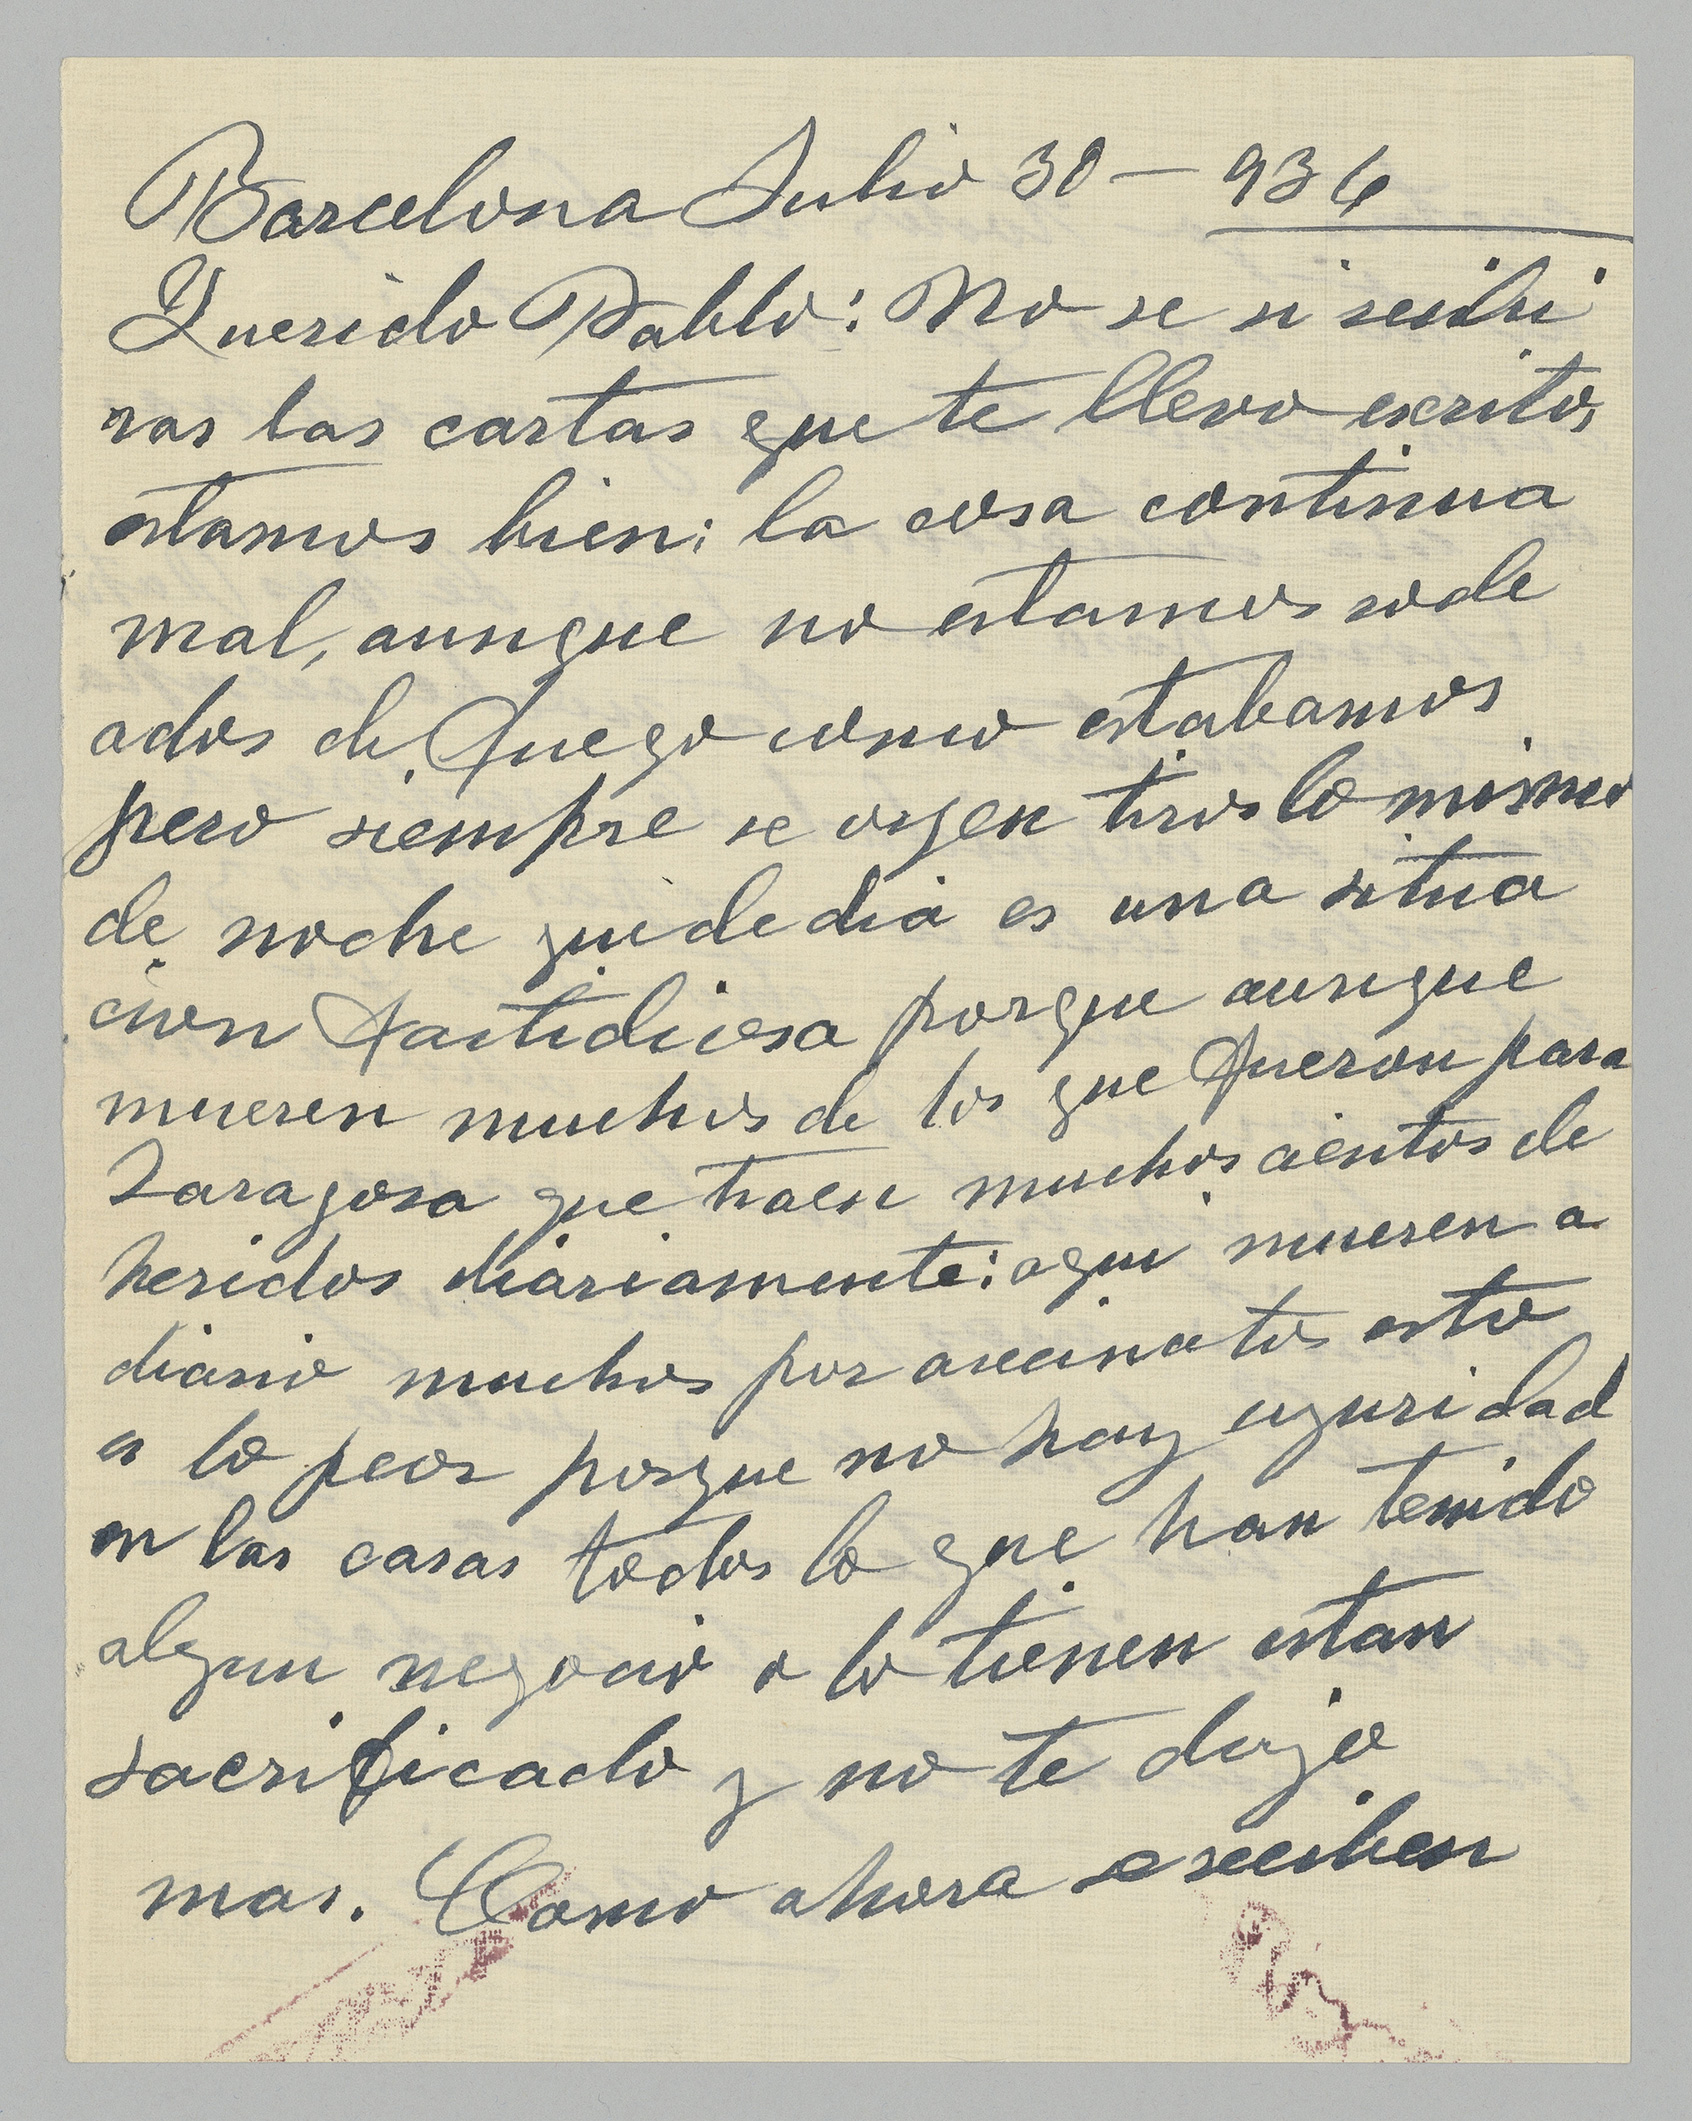 Barcelona Julio 30 — 936
Querido Pablo: No se si recibi
ras las cartas que te llevo escritos
estamos bien; la cosa continua
mal, aunque no estamos rode
ados de fuego como estabamos
pero siempre se oyen tiros lo mismo
de noche que de dia es una situa
cion fastidiosa porque aunque
mueren muchos de los que fueron para
Zaragosa que traen muchos cientos de
heridos diariamente; aqui mueren a
diario muchos por asecinatos esto
es lo peor porque no hay seguridad
en las casas todos lo que han tenido
algun negocio o lo tienen estan
sacrificado y no te digo
mas. Como ahora reciben